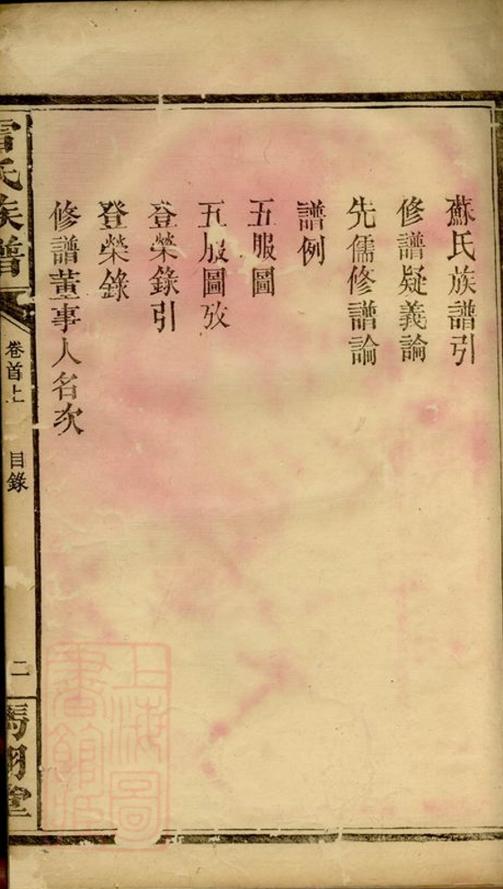 蘇氏族譜引
修譜疑義論
先儒修譜論
譜例
五服圖
五服圖攷
登榮錄引
登榮錄
修譜董事人名次
雷氏族譜
卷首上
目錄
二
馮翊堂
上海圖
書館藏